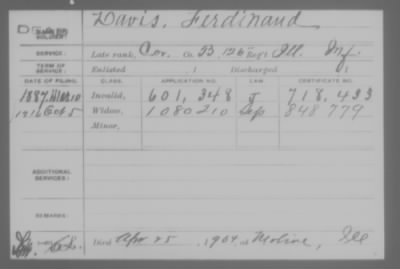 Davis, Ferdinand
NAME OF SOLDIER:
SERVICE: Late rank, Cor. Co. B, 126 Reg't Ill. Inf.
TERM OF SERVICE: Enlisted , 1 Discharged , 1
DATE OF FILING. CLASS. APPLICATION NO. LAW. CERTIFICATE NO.
1887 Mar 10 Invalid, 601,348 J 718,433
1916 Oct 5 Widow, 1080210 848779
Minor,
ADDITIONAL SERVICES:
REMARKS:
Died Apr 25, 1904 at Moline, Ill